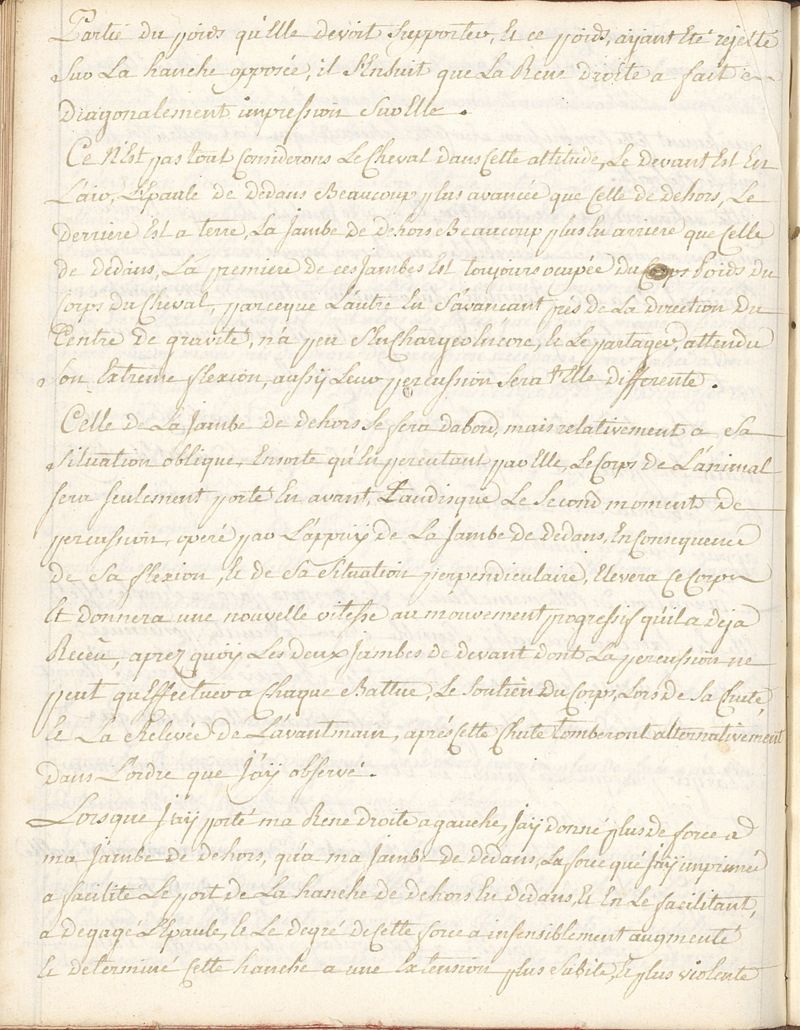 Partie du poids qu'Elle devoit Supporter, Et ce poids, ayant Eté rejetté
Sur La hanche opposée, il S'Ensuit que La Rene droite a fait
Diagonalement impression Sur Elle.
Ce N'Est pas tout Considerons Le Cheval dans Cette attitude, Le devant Est En
L'air, L'Epaule de Dedans Beaucoup plus avancée que Celle de dehors, Le
Derriere Est a terre, La Jambe de Dehors Beaucoup plus En arriere que Celle
de Dedans, La premiere de ces Jambes Est toujours ocupée du Corps Poids du
Corps du Cheval, parceque L'autre En S'avancant prés de La direction Du
Centre de gravité, n'a peu S'En Charger Encore, & Le partager, attendu
Son Extreme flexion, aussy Leur percussion Sera t'Elle differente.
Celle de La Jambe de dehors Se fera dabord, mais relativement a Sa
Situation oblique, Ensorte qu'En percutant par Elle, Le Corps de L'animal
Sera Seulement porté En avant, Tandisque Le Second moment de
percussion, operé par L'appuy de La Jambe de Dedans, En Consequence
de Sa flexion, & de Sa Situation perpendiculaire, Elevera Ce Corps
Et donnera une nouvelle vitesse au mouvement progressif qu'il a deja
Receu, aprez quoy Les deux Jambes de devant dont La percussion ne
peut qu'Effectuer a Chaque Battue, Le Soutien du Corps, Lors de Sa Chute,
& La Relevée de L'avantmain, aprés Cette Chute tomberont alternativement
dans L'ordre que J'ay observé.
Lorsque J'ay porté ma Rene droite a gauche, J'ay donné plus de force a
ma Jambe de Dehors, qu'a ma Jambe de Dedans, La force que J'ay imprimée
a facilité Le port de La hanche de dehors En Dedans, Et En Le facilitant,
a degagé L'Epaule, & Le degré de Cette force a insensiblement augmenté
& determiné Cette hanche a une Extension plus Subite, & plus violente